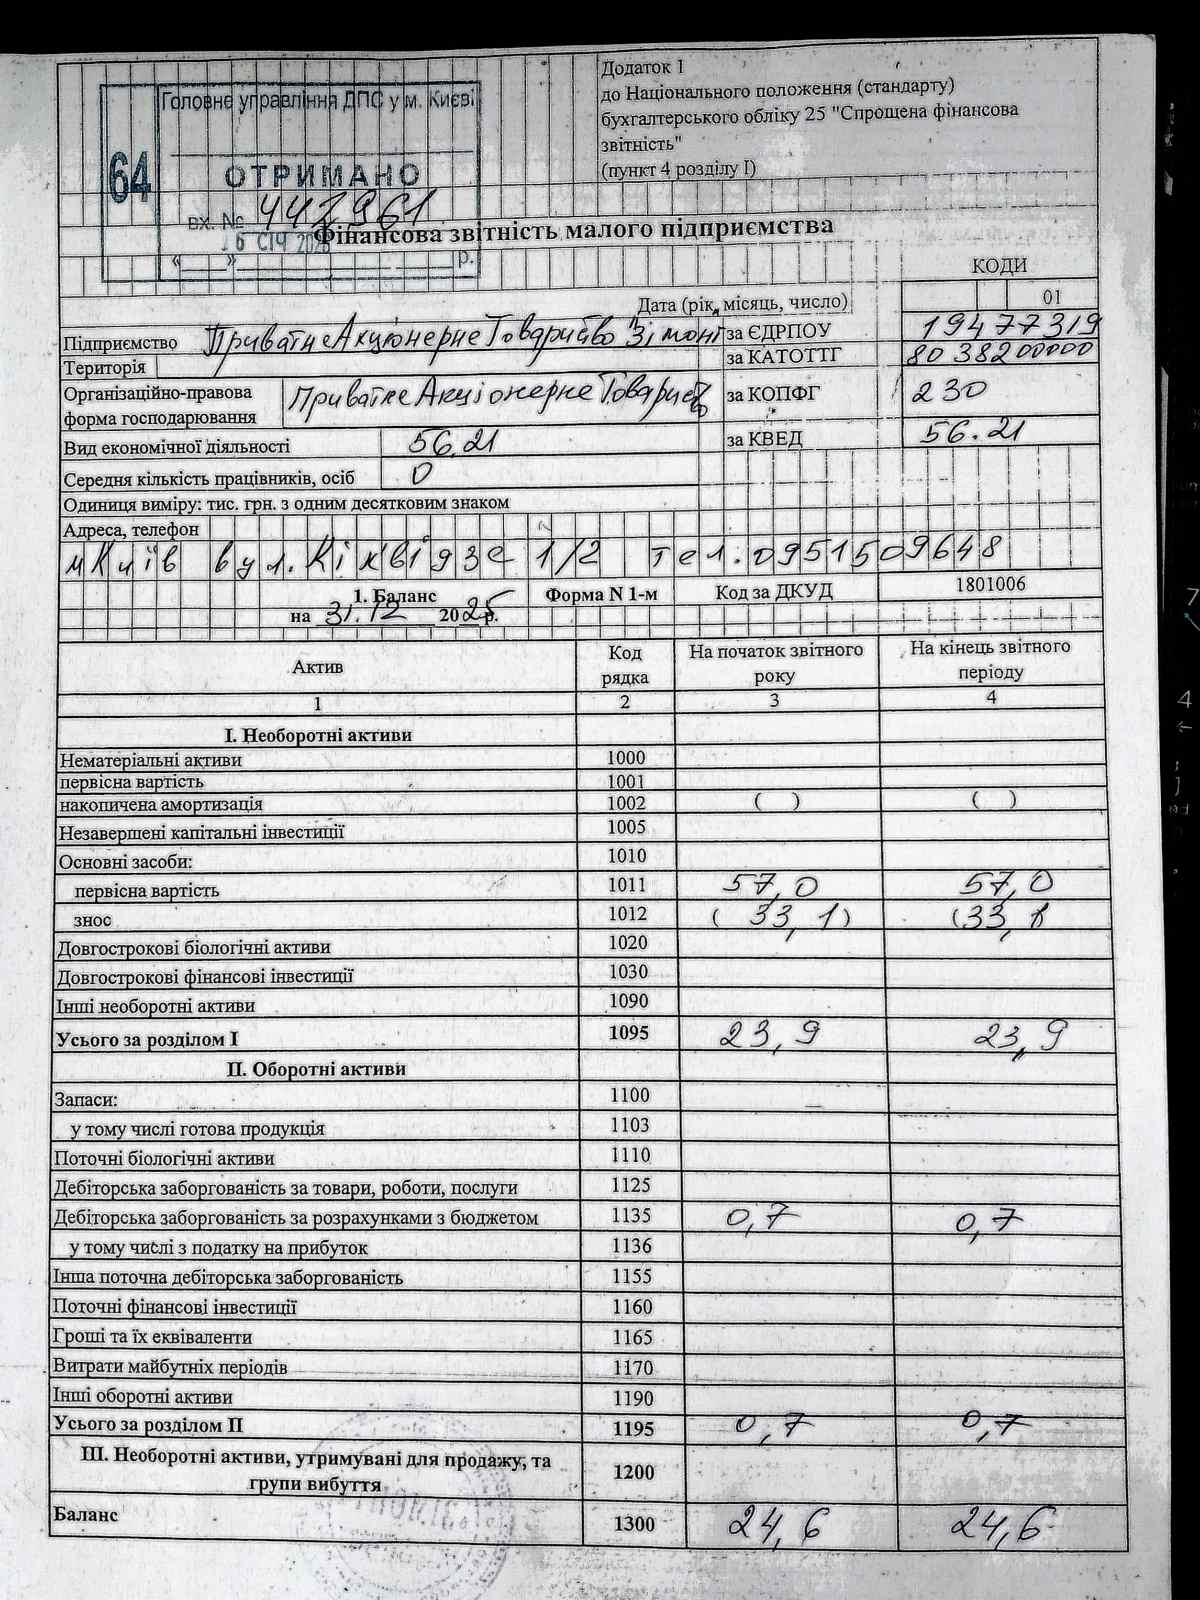 Додаток 1
до Національного положення (стандарту)
бухгалтерського обліку 25 "Спрощена фінансова
звітність"
(пункт 4 розділу I)
64
Головне управління ДПС у м. Києві
ОТРИМАНО
вх. № 442961
6 СІЧ 2026
«___»___ ___ р.
Фінансова звітність малого підприємства
КОДИ
Дата (рік, місяць, число) 01
Підприємство Приватне Акціонерне Товариство "Зімонт за ЄДРПОУ 19477319
Територія за КАТОТТГ 8038200000
Організаційно-правова форма господарювання Приватне Акціонерне Товариство за КОПФГ 230
Вид економічної діяльності 56.21 за КВЕД 56.21
Середня кількість працівників, осіб 0
Одиниця виміру: тис. грн. з одним десятковим знаком
Адреса, телефон
м Київ вул. Кіквідзе 1/2 тел. 0951509648
1. Баланс Форма N 1-м Код за ДКУД 1801006
на 31.12 2025р.
Актив Код рядка На початок звітного року На кінець звітного періоду
1 2 3 4
I. Необоротні активи
Нематеріальні активи 1000
первісна вартість 1001
накопичена амортизація 1002 ( ) ( )
Незавершені капітальні інвестиції 1005
Основні засоби: 1010
первісна вартість 1011 57,0 57,0
знос 1012 ( 33,1) (33,1)
Довгострокові біологічні активи 1020
Довгострокові фінансові інвестиції 1030
Інші необоротні активи 1090
Усього за розділом I 1095 23,9 23,9
II. Оборотні активи
Запаси: 1100
у тому числі готова продукція 1103
Поточні біологічні активи 1110
Дебіторська заборгованість за товари, роботи, послуги 1125
Дебіторська заборгованість за розрахунками з бюджетом 1135 0,7 0,7
у тому числі з податку на прибуток 1136
Інша поточна дебіторська заборгованість 1155
Поточні фінансові інвестиції 1160
Гроші та їх еквіваленти 1165
Витрати майбутніх періодів 1170
Інші оборотні активи 1190
Усього за розділом II 1195 0,7 0,7
III. Необоротні активи, утримувані для продажу, та групи вибуття 1200
Баланс 1300 24,6 24,6